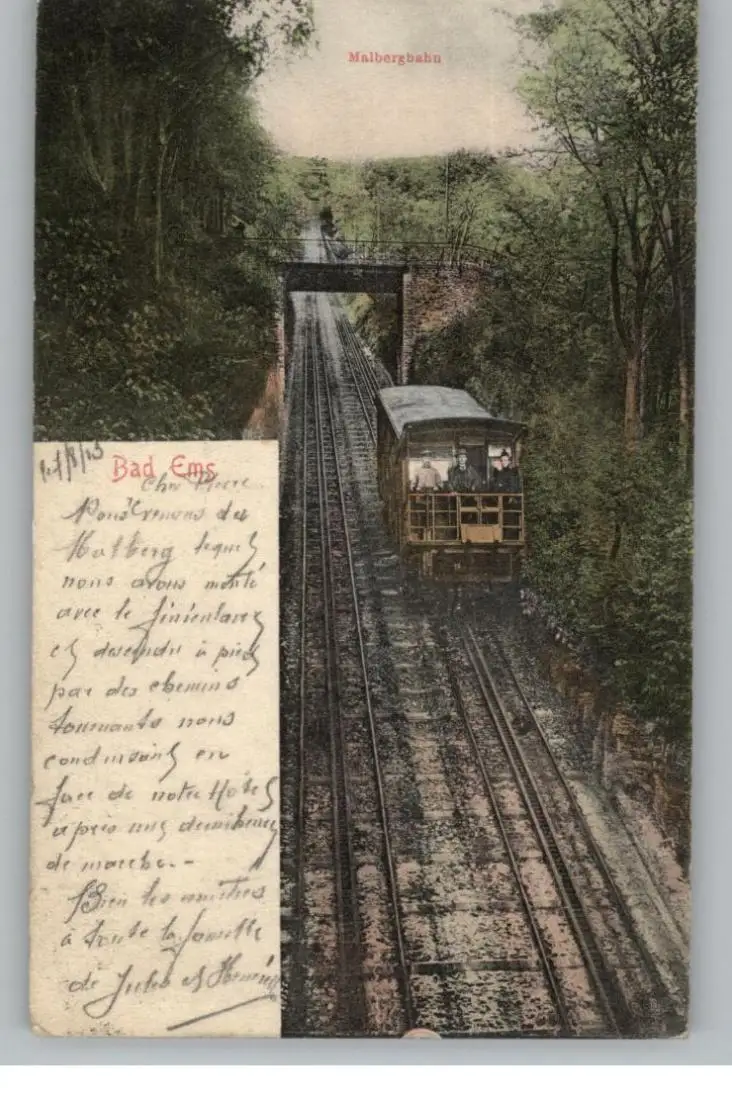 Malbergbahn
Bad Ems
Cher Pierre
Nous revenons du
Malberg lequel
nous avons monté
avec le
et descendu à pied
par des chemins
tournants nous
conduisant en
face de notre Hôtel
après une demiheure
de marche. -
Bien les amitiés
à toute la famille
de Jules et